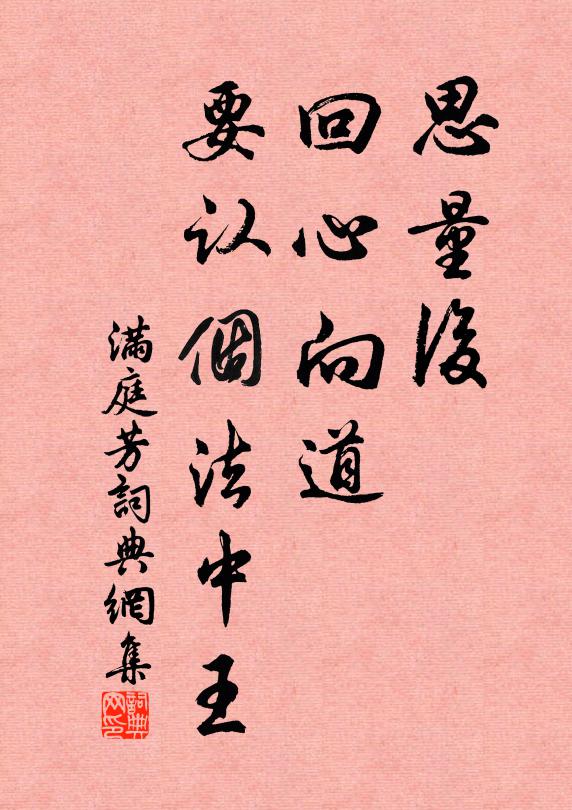 思量後
回心向道
要认個法中王
滿庭芳詞典網集
詞典网印